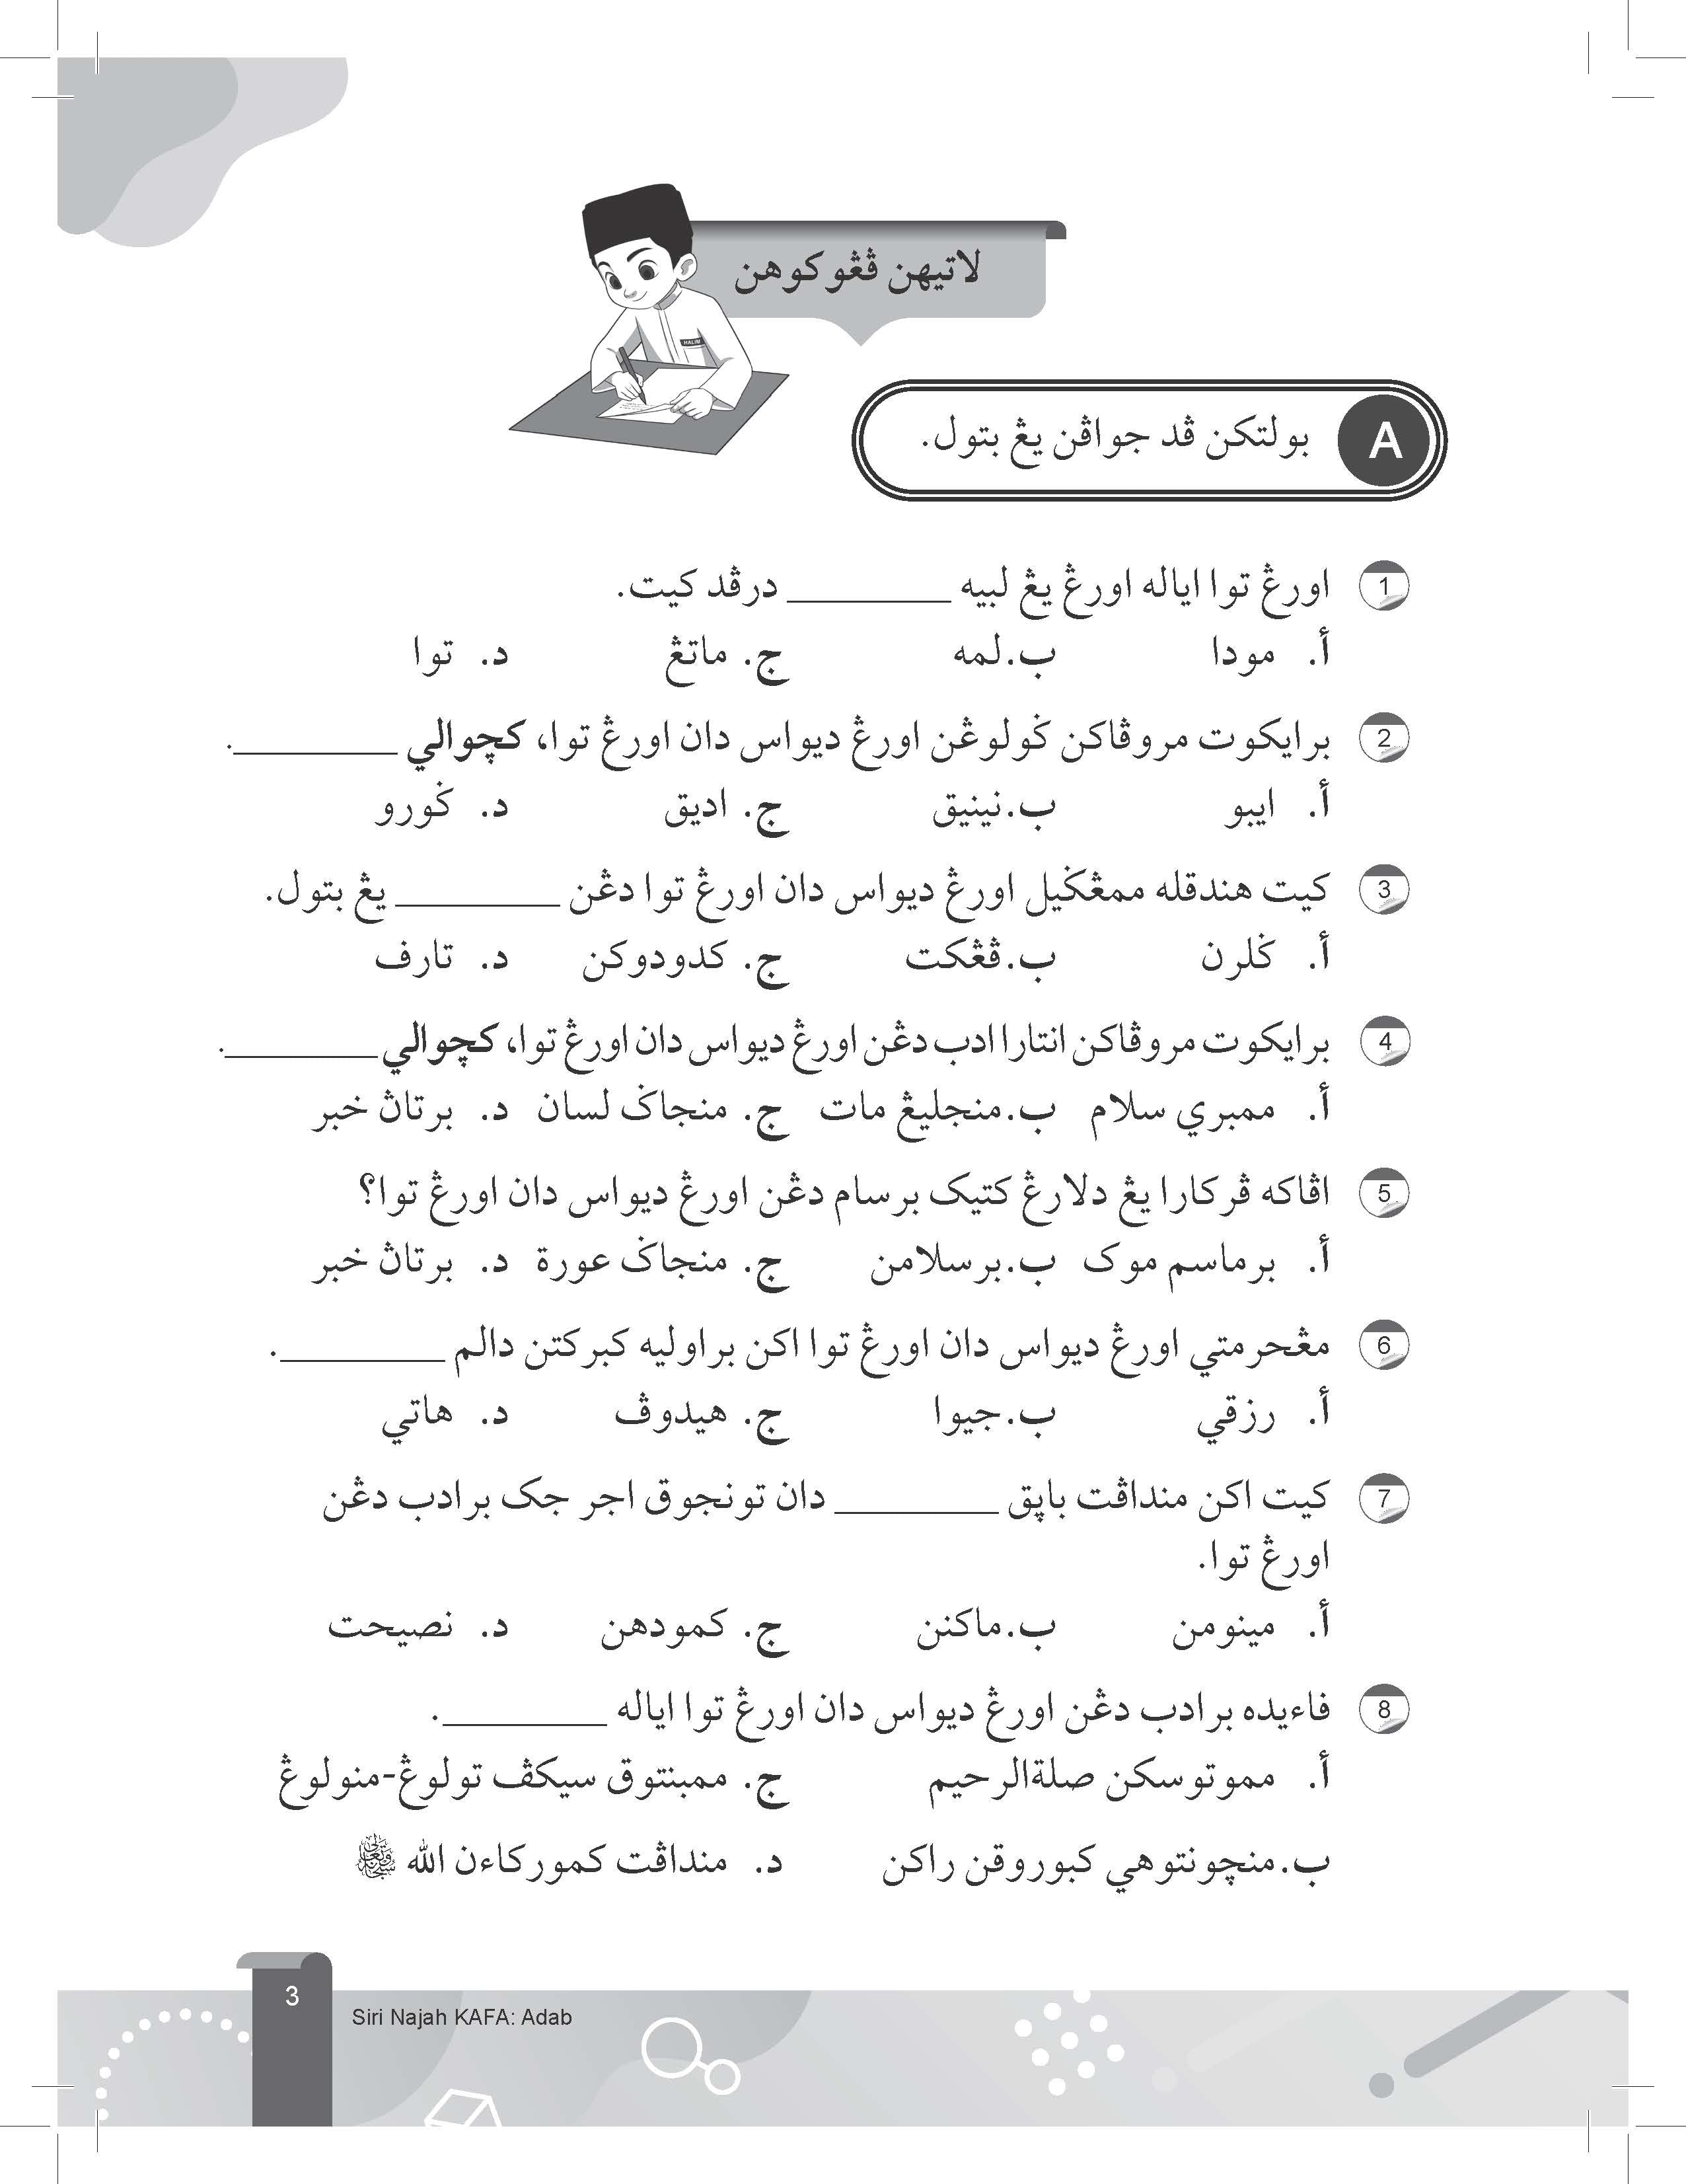 HALIM
لاتيهن ڤڠوكوهن
A بولتكن ڤد جواڤن يڠ بتول.
1 اورڠ توا اياله اورڠ يڠ لبيه __________ درڤد كيت.
أ. مودا ب. لمه ج. ماتڠ د. توا
2 برايكوت مروڤاكن ݢولوڠن اورڠ ديواس دان اورڠ توا، كچوالي __________.
أ. ايبو ب. نينيق ج. اديق د. ݢورو
3 كيت هندقله ممڠݢيل اورڠ ديواس دان اورڠ توا دڠن __________ يڠ بتول.
أ. ݢلرن ب. ڤڠكت ج. كدودوكن د. تارف
4 برايكوت مروڤاكن انتارا ادب دڠن اورڠ ديواس دان اورڠ توا، كچوالي __________.
أ. ممبري سلام ب. منجليڠ مات ج. منجاݢ لسان د. برتاڽ خبر
5 اڤاكه ڤركارا يڠ دلارڠ كتيک برسام دڠن اورڠ ديواس دان اورڠ توا؟
أ. برماسم موک ب. برسلامن ج. منجاݢ عورة د. برتاڽ خبر
6 مڠحرمتي اورڠ ديواس دان اورڠ توا اكن براوليه كبركتن دالم __________.
أ. رزقي ب. جيوا ج. هيدوڤ د. هاتي
7 كيت اكن منداڤت باڽق __________ دان تونجوق اجر جک برادب دڠن
اورڠ توا.
أ. مينومن ب. ماكنن ج. كمودهن د. نصيحت
8 فاءيده برادب دڠن اورڠ ديواس دان اورڠ توا اياله __________.
أ. مموتوسكن صلةالرحيم ج. ممبنتوق سيكڤ تولوڠ-منولوڠ
ب. منچونتوهي كبوروقن راكن د. منداڤت كموركاءن الله سبحانه وتعالى
3
Siri Najah KAFA: Adab